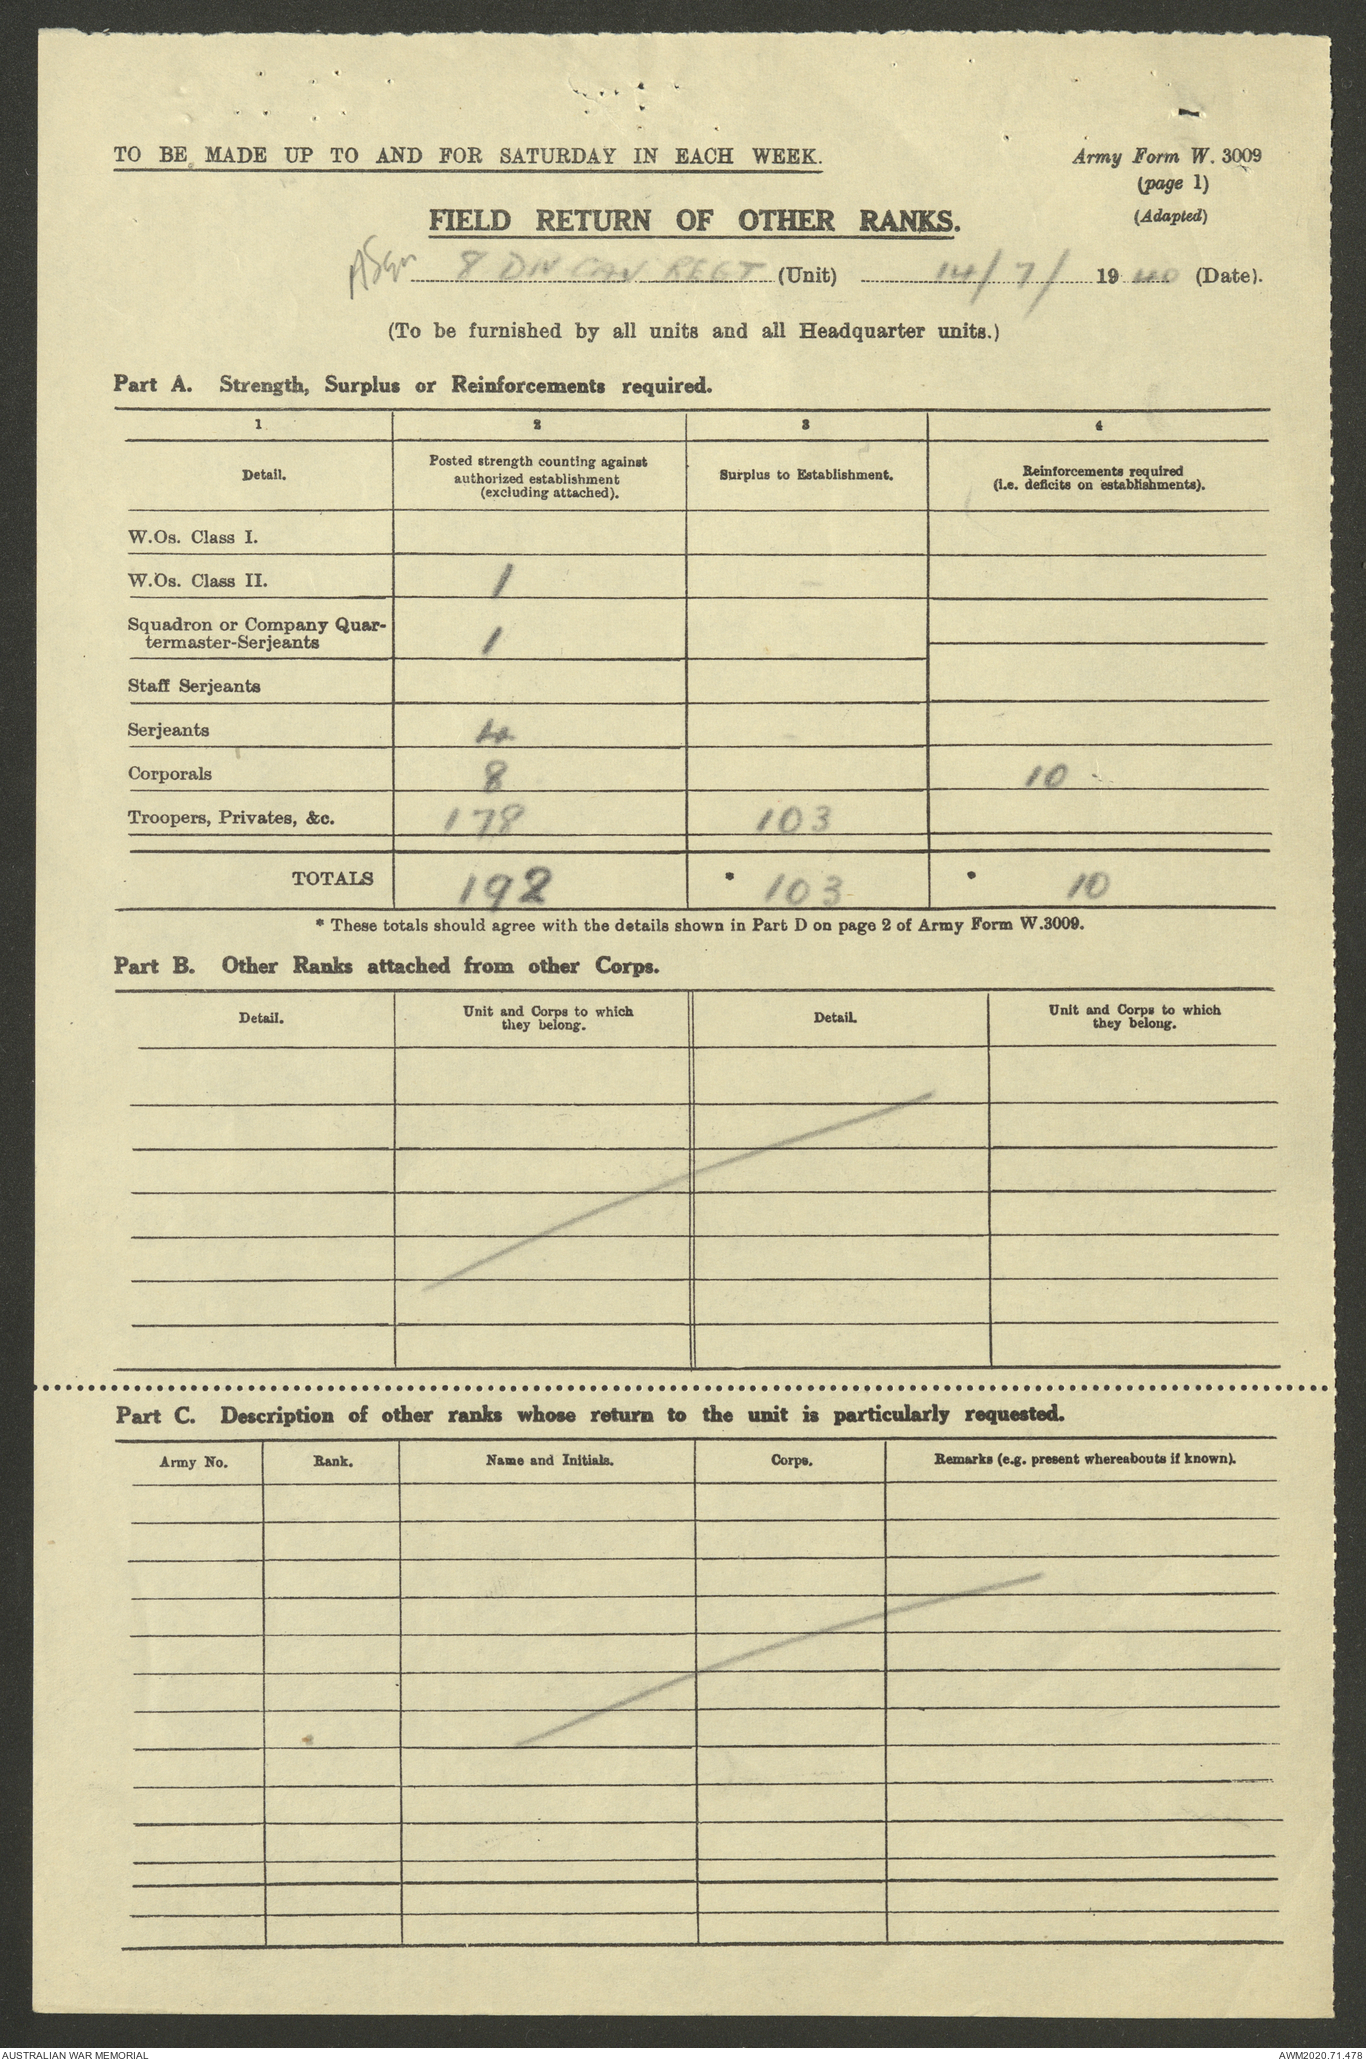 TO BE MADE UP TO AND FOR SATURDAY IN EACH WEEK.
Army Form W. 3009
(page 1)
(Adapted)
FIELD RETURN OF OTHER RANKS.
A Sqn 8 DIV CAV REGT (Unit) 14/7/ 1940 (Date).
(To be furnished by all units and all Headquarter units.)
Part A. Strength, Surplus or Reinforcements required.
1 2 3 4
Detail. Posted strength counting against authorized establishment (excluding attached). Surplus to Establishment. Reinforcements required (i.e. deficits on establishments).
W.Os. Class I.
W.Os. Class II. 1
Squadron or Company Quar-
termaster-Serjeants 1
Staff Serjeants
Serjeants 4
Corporals 8 10
Troopers, Privates, &c. 178 103
TOTALS 192 * 103 * 10
* These totals should agree with the details shown in Part D on page 2 of Army Form W.3009.
Part B. Other Ranks attached from other Corps.
Detail. Unit and Corps to which they belong. Detail. Unit and Corps to which they belong.
Part C. Description of other ranks whose return to the unit is particularly requested.
Army No. Rank. Name and Initials. Corps. Remarks (e.g. present whereabouts if known).
AUSTRALIAN WAR MEMORIAL
AWM2020.71.478